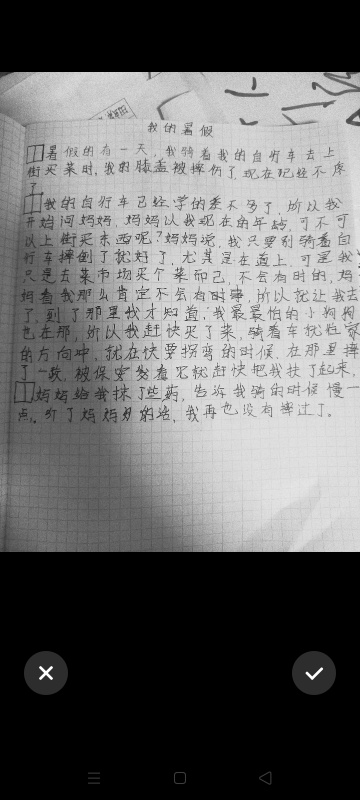 我的暑假
暑假的有一天,我骑着我的自行车去上
街买菜时,我的膝盖被摔伤了现在已经不疼
了
我的自行车已经学的差不多了,所以我
开始问妈妈,妈妈以我现在的年龄,可不可
以上街买东西呢?妈妈说,我只要别骑着自
行车摔倒了就好了,尤其是在道上,可是我
只是去菜市场买个菜而已,不会有时的,妈
妈看我那么肯定不会有时事,所以就让我去
了,到了那里我才知道,我最最怕的小狗狗
也在那,所以我赶快买了菜,骑着车就往家
的方向中,就在快要拐弯的时候,在那里摔
了一跤,被保安看见就赶快把我扶了起来,
妈妈给我抹了些药,告诉我骑的时候慢一
点,听了妈妈的话,我再也没有摔过了。